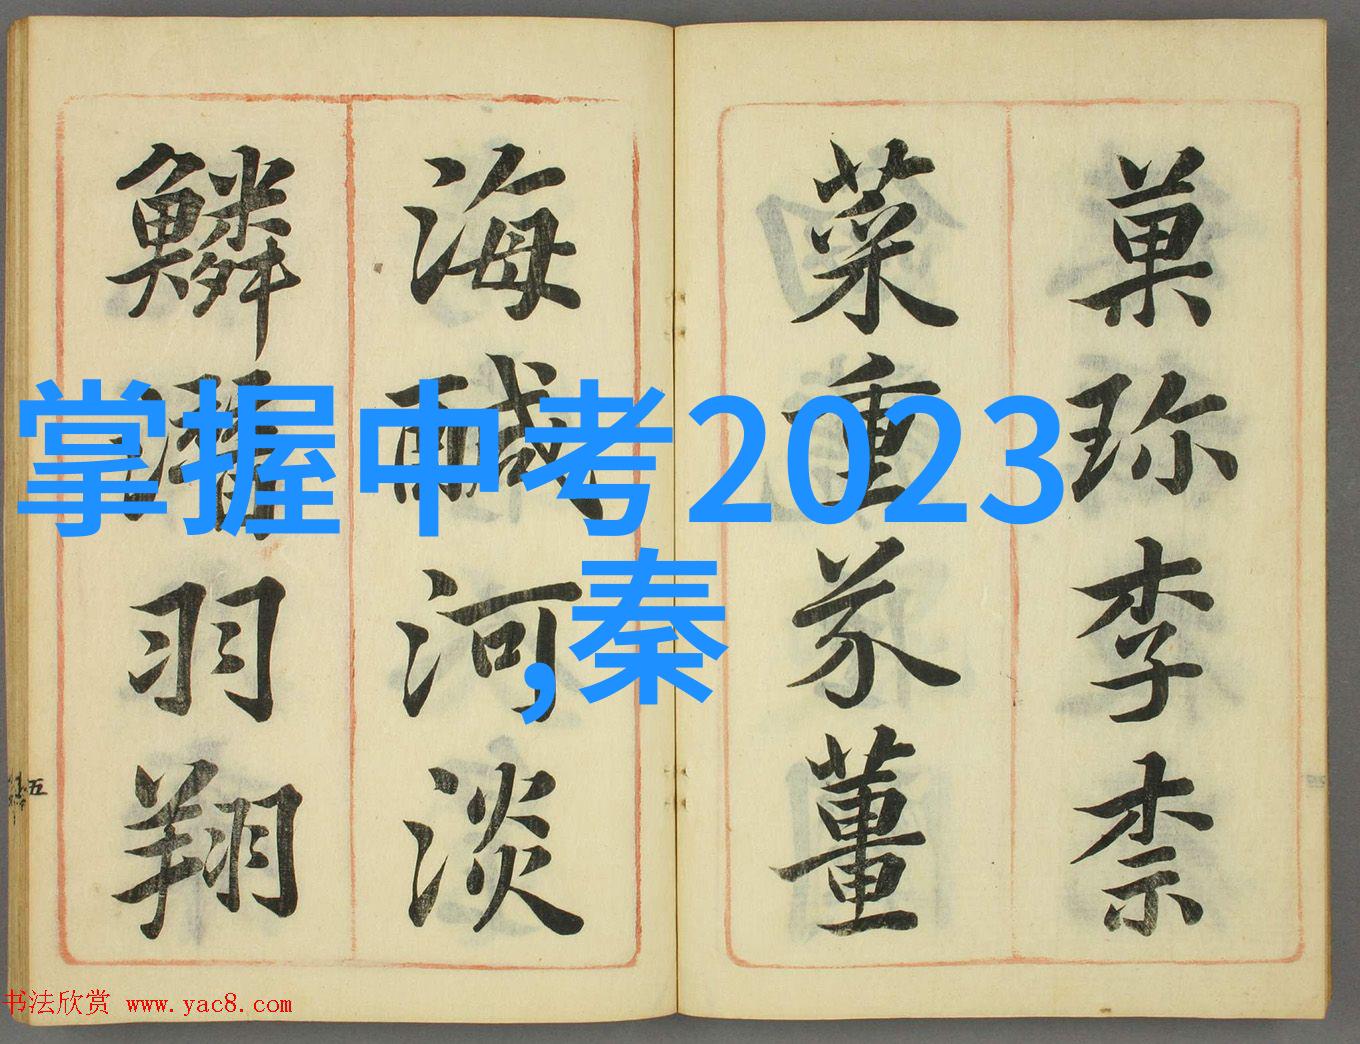 菓珎李柰
菜重芥薑
海鹹河淡
鱗潛羽翔
掌握中考2023
,秦
五
书法欣赏 www.yac8.com